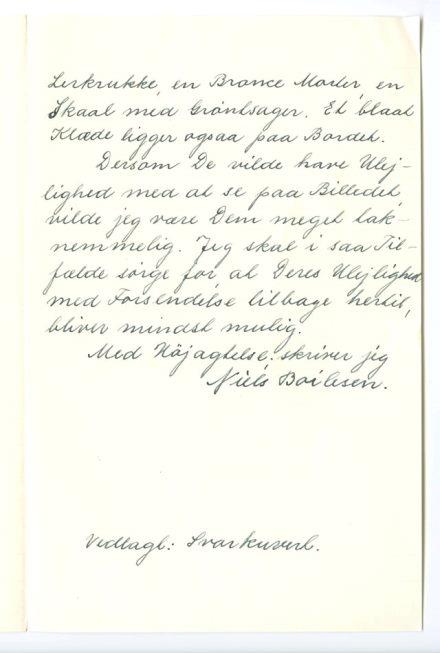 Lerkrukke, en Bronce Morter, en
Skaal med Grøntsager. Et blaat
Klæde ligger ogsaa paa Bordet.
Dersom De vilde have Ulej-
lighed med at se paa Billedet,
vilde jeg være Dem meget tak-
nemmelig. Jeg skal i saa Til-
fælde sørge for at Deres Ulejlighed
med Forsendelse tilbage hertil,
bliver mindst mulig.
Med Højagtelse, skriver jeg
Niels Boilesen.
Vedlagt: Svarkuvert.